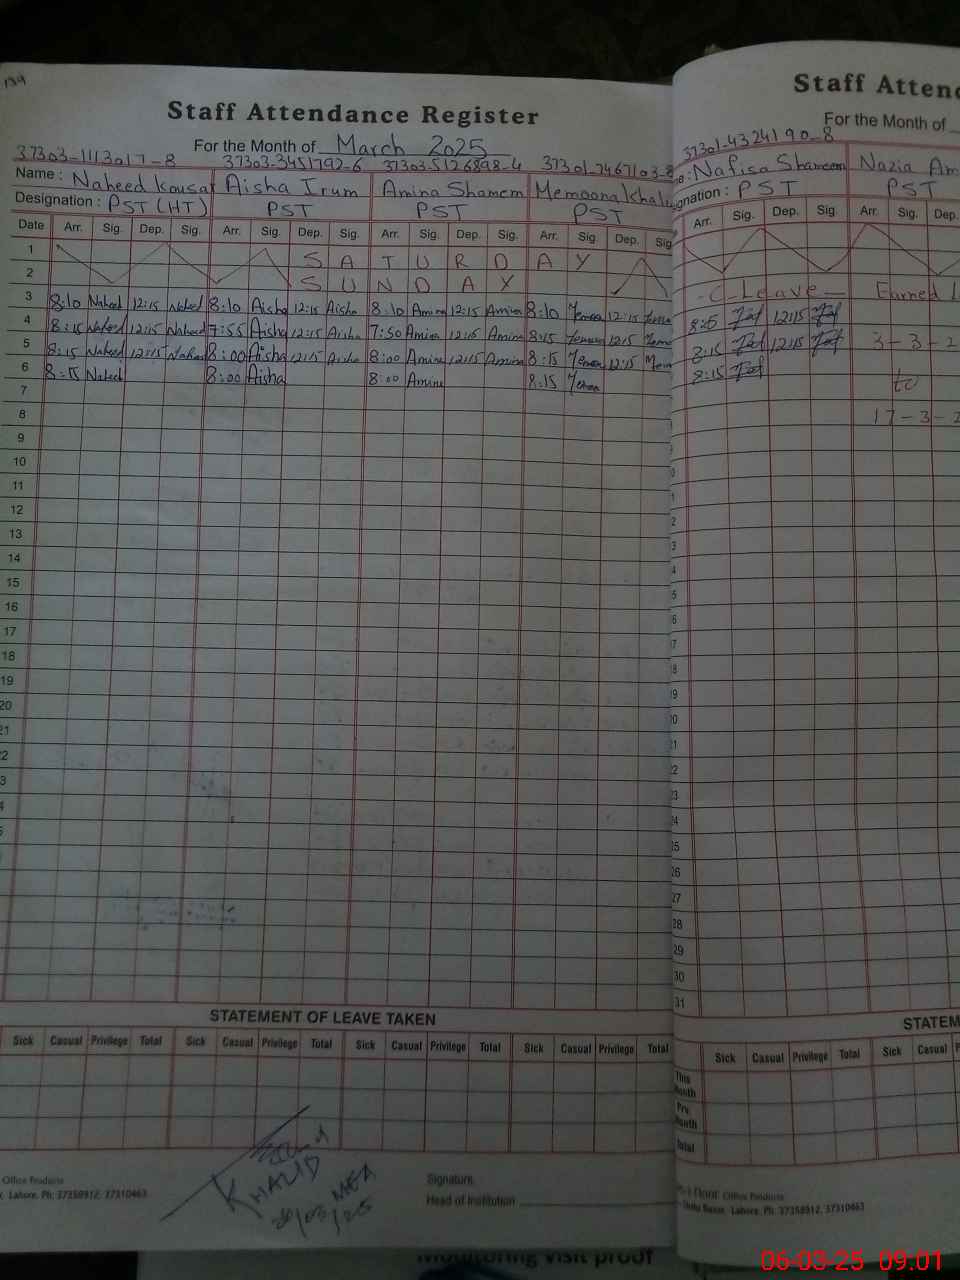 139
Staff Attendance Register
For the Month of March 2025
37303-1113017-8 37303-3451792-6 37303-5126898-4 37301-7467103-8
Name : Naheed Kousar Aisha Irum Amina Shamem Memoona Khal
Designation : PST (HT) PST PST PST
Date Arr. Sig. Dep. Sig. Arr. Sig. Dep. Sig. Arr. Sig. Dep. Sig. Arr. Sig. Dep. Sig
1 SATURDAY
2 SUNDAY
3 8:10 Naheed 12:15 Naheed 8:10 Aisha 12:15 Aisha 8:10 Amina 12:15 Amina 8:10 12:15
4 8:15 Naheed 12:15 Naheed 7:55 Aisha 12:15 Aisha 7:50 Amina 12:15 Amina 8:15 12:15
5 8:15 Naheed 12:15 Naheed 8:00 Aisha 12:15 Aisha 8:00 Amina 12:15 Amina 8:15 12:15
6 8:15 Naheed 8:00 Aisha 8:00 Amina 8:15
7
8
9
10
11
12
13
14
15
16
17
18
19
20
21
2
3
4
5
STATEMENT OF LEAVE TAKEN
Sick Casual Privilege Total Sick Casual Privilege Total Sick Casual Privilege Total Sick Casual Privilege Total
KHALID
MEA
06/03/25
Office Products
Lahore. Ph: 37358912, 37310463
Signature.
Head of Institution
Staff Attend
For the Month of
37301-4324190-8
Nafisa Shameem Nazia Am
gnation : PST PST
Arr. Sig. Dep. Sig. Arr. Sig. Dep.
- C - Leave - Earned L
8:5 12:15
8:15 12:15 3-3-2
8:15 to
17-3-2
0
1
2
3
4
5
6
7
8
9
20
21
22
23
24
25
26
27
28
29
30
31
STATEM
Sick Casual Privilege Total Sick Casual P
This Month
Pre Month
Total
Floor Office Products
Urdu Bazar, Lahore. Ph. 37358912, 37310463
Monitoring visit proof
06-03-25 09:01